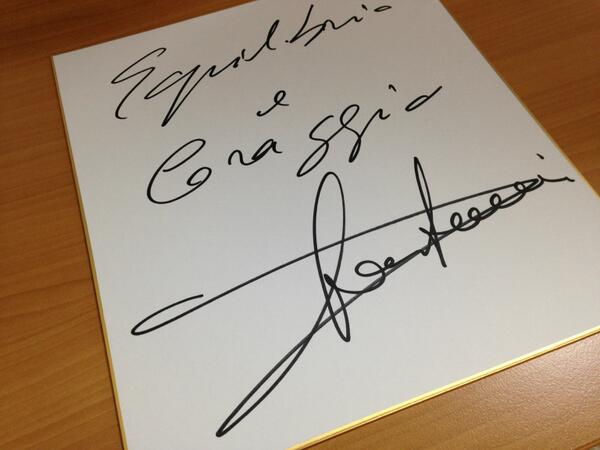 Equilibrio
e
Coraggio